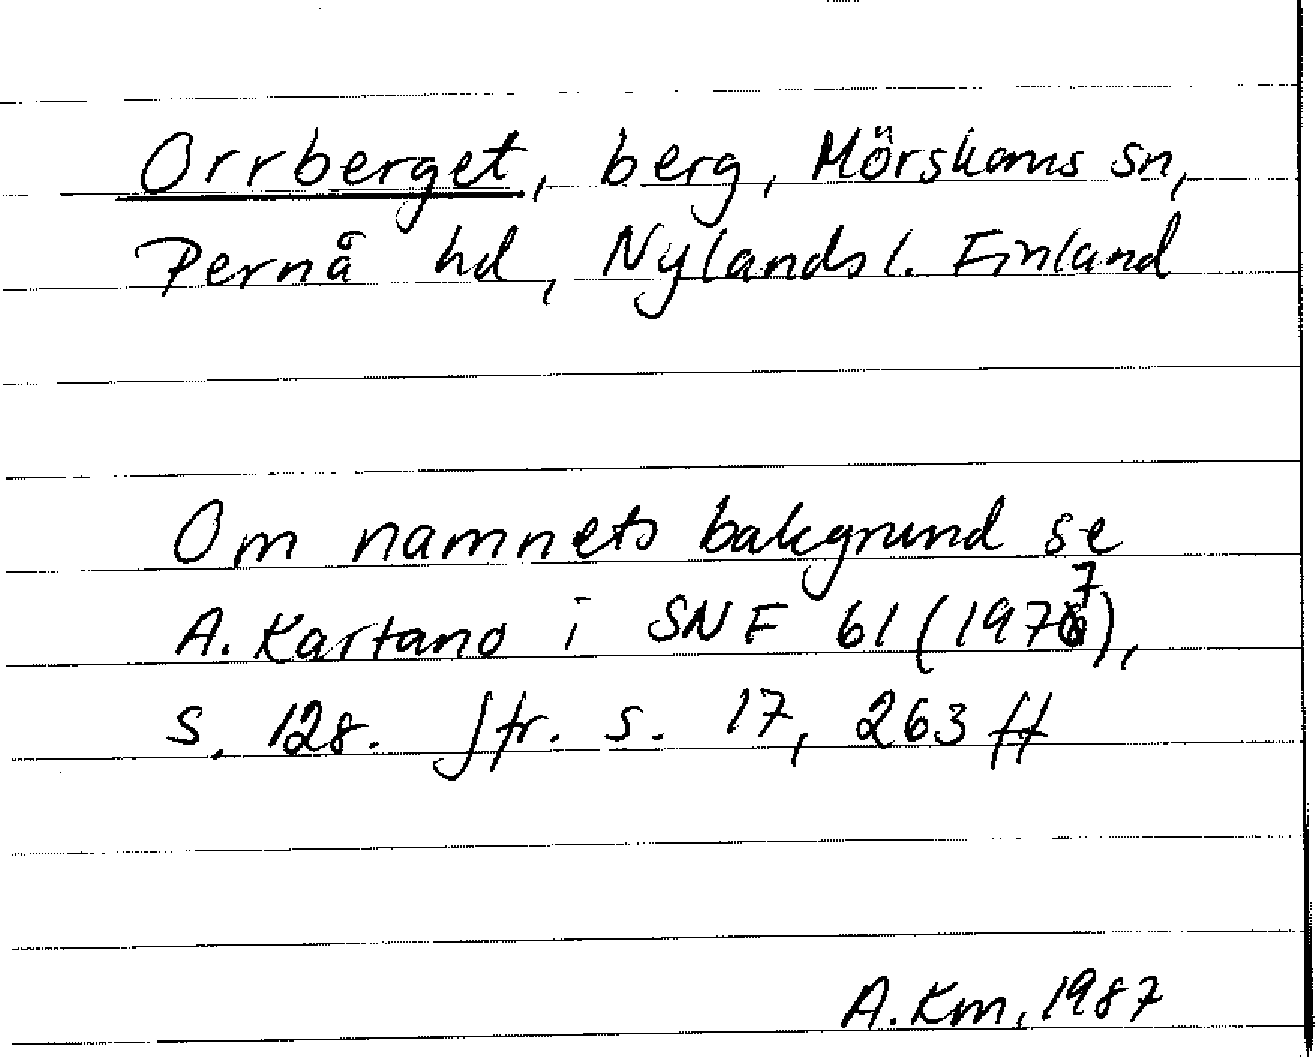 Orrberget, berg, Mörskoms sn,
Pernå hd, Nylands l. Finland
Om namnets bakgrund se
A. Kartano i SNF 61 (1977),
s. 128. Jfr. s. 17, 263 ff
A. Km, 1987